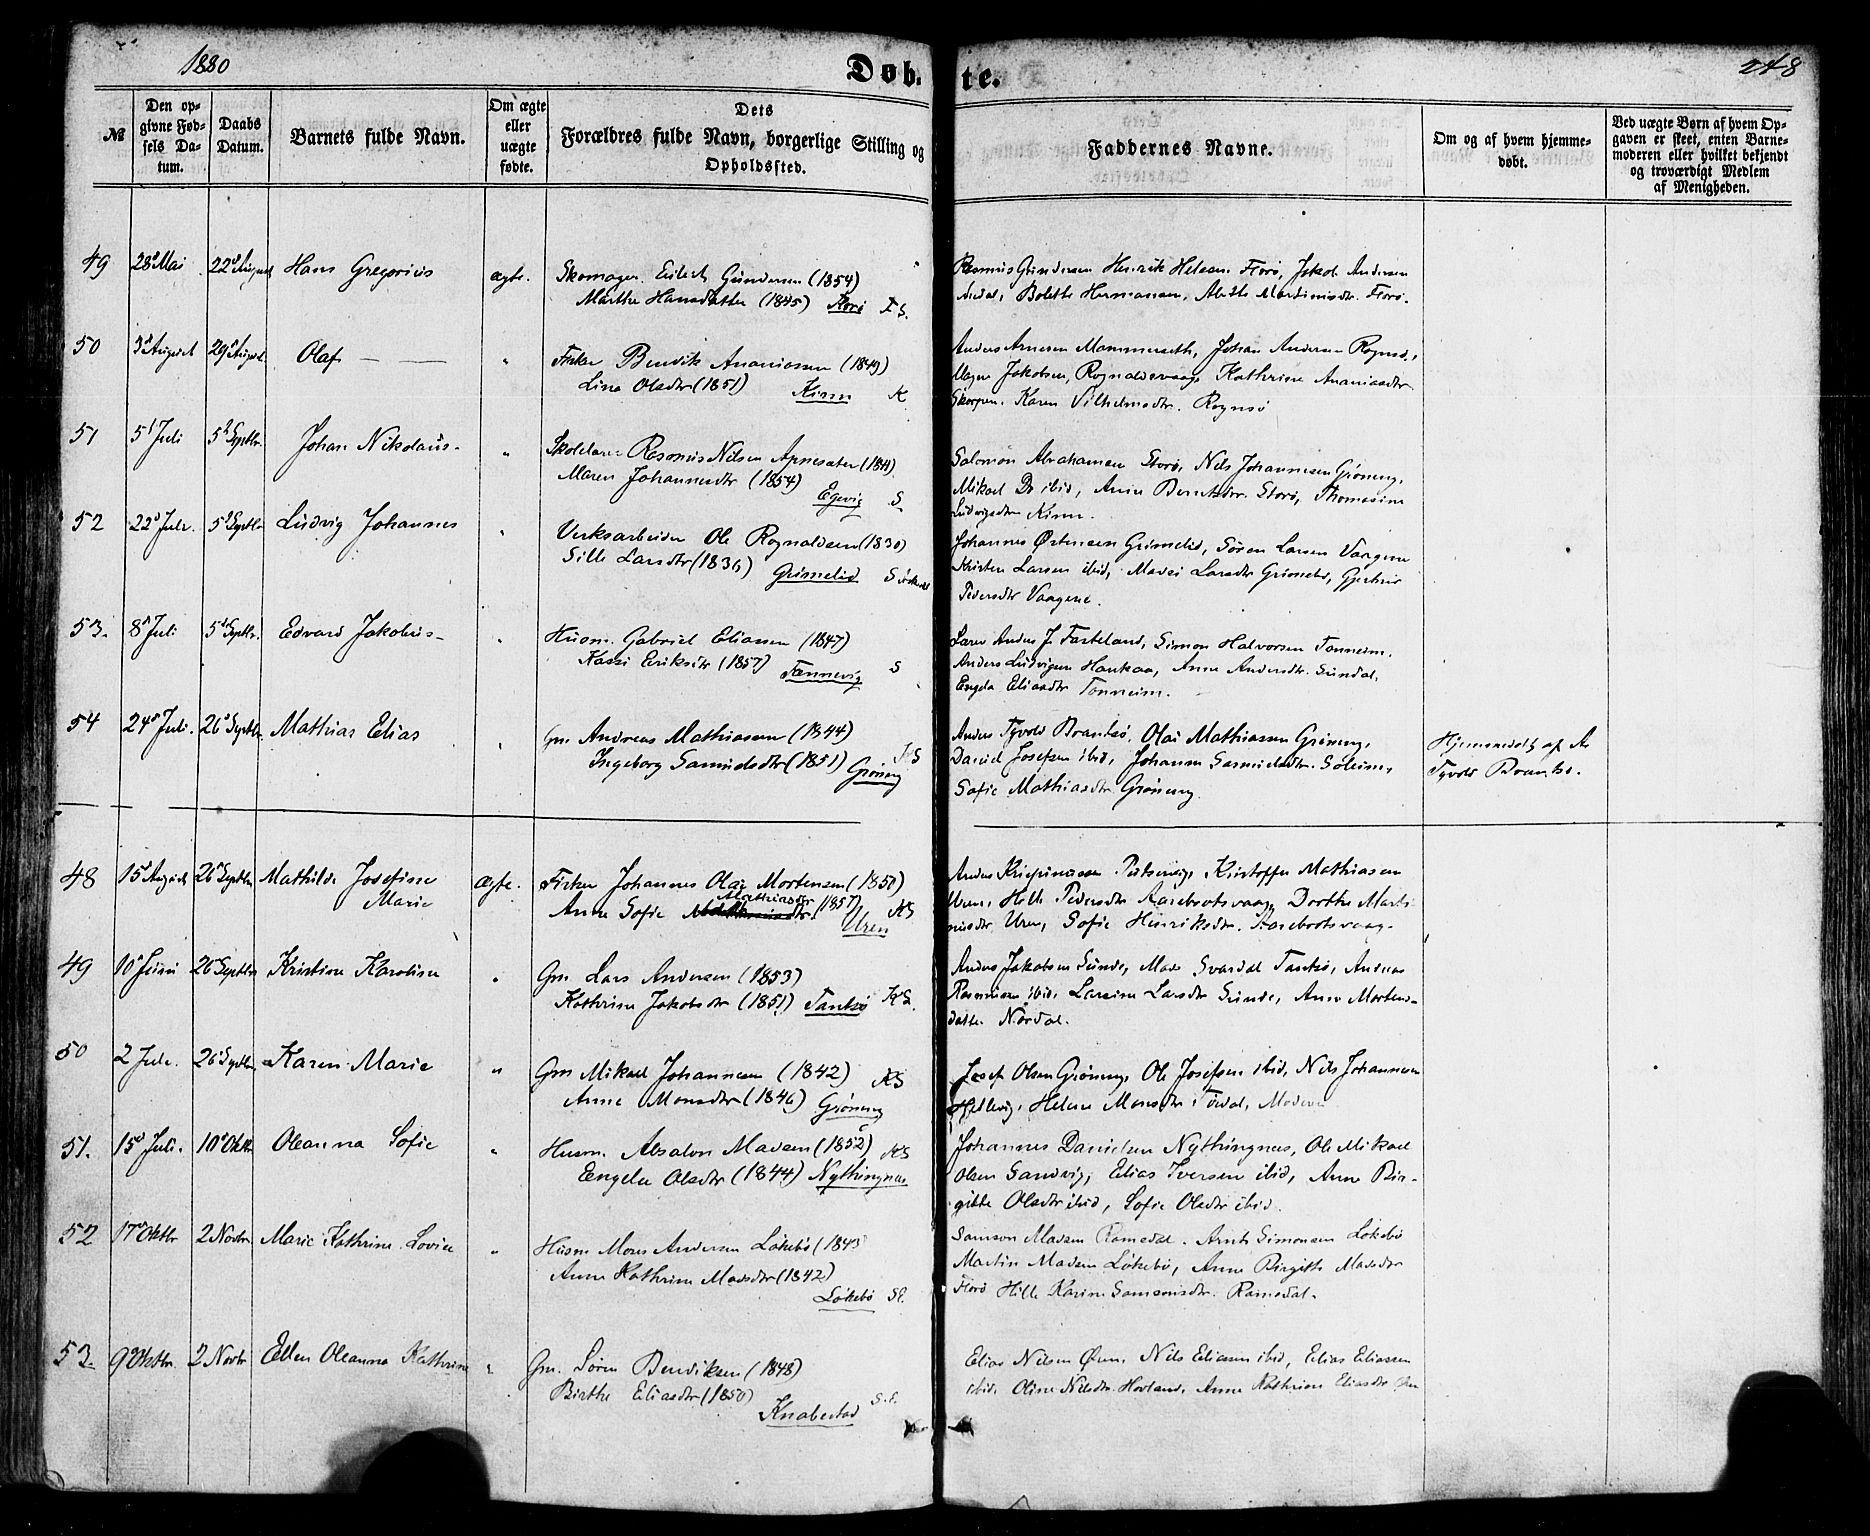 1880
Døb-
te.
248
№
Den opgivne Fødsels Datum.
Daabs Datum.
Barnets fulde Navn.
Om ægte eller uægte fødte.
Dets Forældres fulde Navn, borgerlige Stilling og Opholdssted.
Faddernes Navne.
Om og af hvem hjemmedøbt.
Ved uægte Børn af hvem Opgaven er skeet, enten Barnemoderen eller hvilket bekjendt og troværdigt Medlem af Menigheden.
49 28d Mai 22d August Hans Gregorius ægte. Skomager Eilert Gundersen (1854)
Marthe Hansdatter (1845) Florø F S.
Rasmus Gundersen Henrik Helsen Florø, Jakob Andersen
Bolette Hermansen, Martinusdtr. Florø.
50 3d August 29d August. Olaf — — " Fisker Bendik Ananiassen (1849)
Lina Olsdtr (1851) Kinn K
Anders Arnesen Mammeseth, Johan Andersen Rognsø,
Jakobsen, Rognaldsvaag, Kathrine Ananiasdtr.
Skorpen. Karen Vilhelmsdtr. Rognsø
51 5d Juli 5d Septbr. Johan Nikolaus- " Skolelærer Rasmus Nilsen
Maren Johannesdtr (1854)
Egevig S.
Salomon Abrahamsen Storø, Nils Johannesen Grøneng,
Mikael Do ibid, Anne Berntsdtr. Storø, Thomasine
Ludvigsdtr Kinn.
52 22d Juli. 5d Septbr Ludvig Johannes " Verksarbeider Ole Rognaldsen (1830)
Sille Larsdtr (1836) Grimelid S
Johannes Østensen Grimelid, Søren Larsen Vaagene
Kristen Larsen ibid, Larsdtr Grimelid, Gjertine
Pedersdtr Vaagene.
53. 8d Juli 5d Septbr. Edvard Jakobus- " Husm. Gabriel Eliassen (1847)
Eriksdtr (1857) Tennevig S
Anders J. Fasteland, Simon Halvorsen Tonheim.
Anders Ludvigsen Hankaa, Anne Andersdtr. Sundal,
Engla Eliasdtr Tonheim.
54 24d Juli. 26d Septbr. Mathias Elias " Gm. Andreas Mathiassen (1844)
Ingeborg Samuelsdtr (1851) Grøneng KS
Anders Tyvold Brandsø, Olai Mathiassen Grøneng,
Daniel Josefsen ibid, Johanna Samuelsdtr. Solheim,
Sofie Mathiasdtr Grøneng.
Hjemmedøbt af A.
Tyvold Brandsø.
48 15d August 26d Septbr Mathilde Josefine ægte. Fisker Johannes Olai Mortensen (1850)
Marie Anne Sofie Mathiasdtr (1857) Uren KS
Anders Krispinussen Kristoffer Mathiassen
Uren, Hille Pedersdtr Aarebrotsvaag, Dorthe Marti-
nusdtr Uren, Sofie Henriksdtr. Aarebrotsvaag.
49 10d Juni 26d Septbr Kristine Karoline " Gm Lars Andersen (1853)
Kathrine Jakobsdtr (1851) Tansø KS.
Anders Jakobsen Sunde, Mads Svardal Tansø, Andreas
Rasmussen ibid, Larsine Larsdtr Sunde, Anne Mortens-
datter Nordal.
50 2 Juli. 26d Septbr. Karen Marie " Gm Mikael Johannesen (1842) KS
Anne Monsdtr (1846) Grøneng
Josef Olsen Grøneng, Ole Josefsen ibid, Nils Johannesen
Helene Monsdtr
51. 15d Juli. 10d Oktbr Oleanna Sofie " Husm. Absalon Madsen (1852) KS
Engela Olsdtr (1844) Nyttingnes
Johannes Danielsen Nyttingnes, Ole Mikael
Olsen Sandvig, Elias Iversen ibid, Anne Bir-
gitte Olsdtr ibid, Sofie Olsdtr ibid.
52 17d Oktbr 2 Novbr Marie Kathrine Lovise " Husm Mons Andersen Løkebø (1843)
Anne Kathrine Madsdtr (1842)
Løkebø
Samson Madsen Ramsdal. Simonsen Løkebø
Martin Madsen Løkebø, Anne Birgitte Madsdtr
Florø Hille Karine Samsonsdtr. Ramsdal.
53. 9d Oktbr. 2 Novbr Ellen Oleanna Kathrine " Gm. Søren Bendiksen (1848)
Birthe Eliasdtr (1850)
Knabestad S.E.
Elias Nilsen Øren, Nils Eliassen ibid, Elias Eliassen
ibid. Oline Nilsdtr. Hovland, Anne Kathrine Eliasdtr Øren